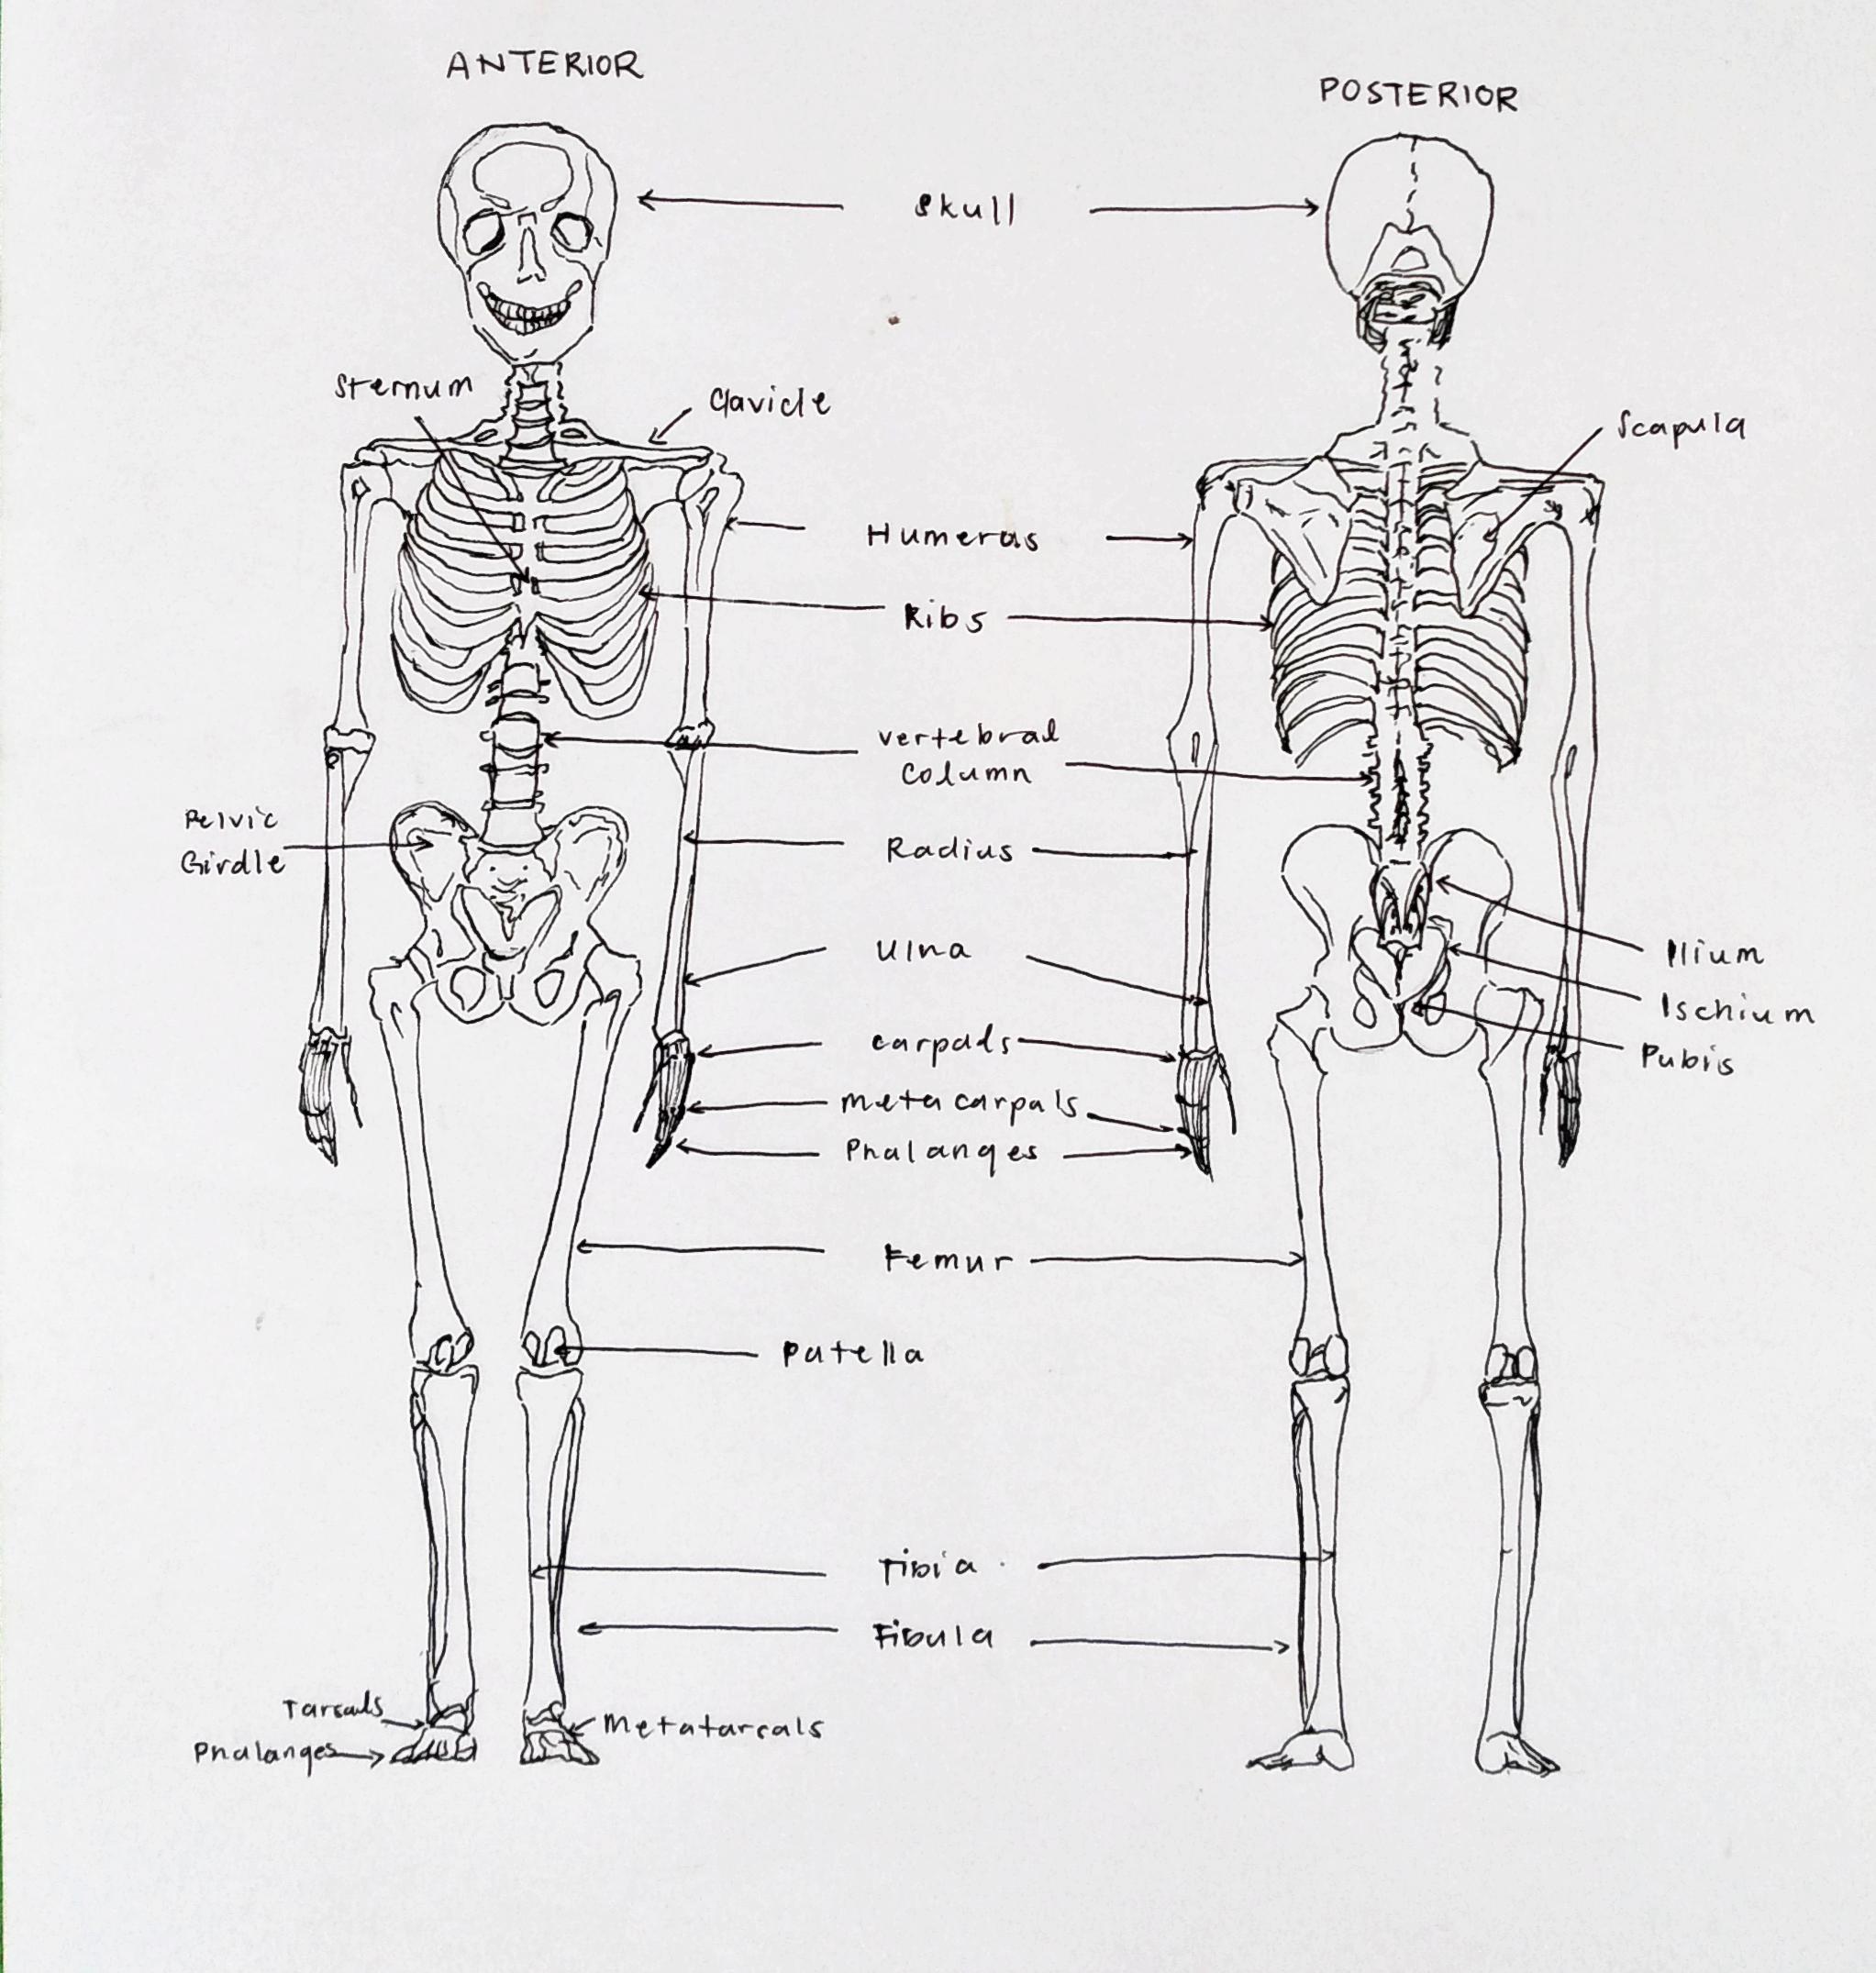 ANTERIOR
POSTERIOR
Skull
Sternum
Clavicle
Scapula
Humeras
Ribs
vertebral
column
Pelvic
Girdle
Radius
Ulna
Ilium
Ischium
Pubis
carpals
metacarpals
Phalanges
Femur
Patella
Tibia
Fibula
Tarsals
Phalanges
Metatarsals